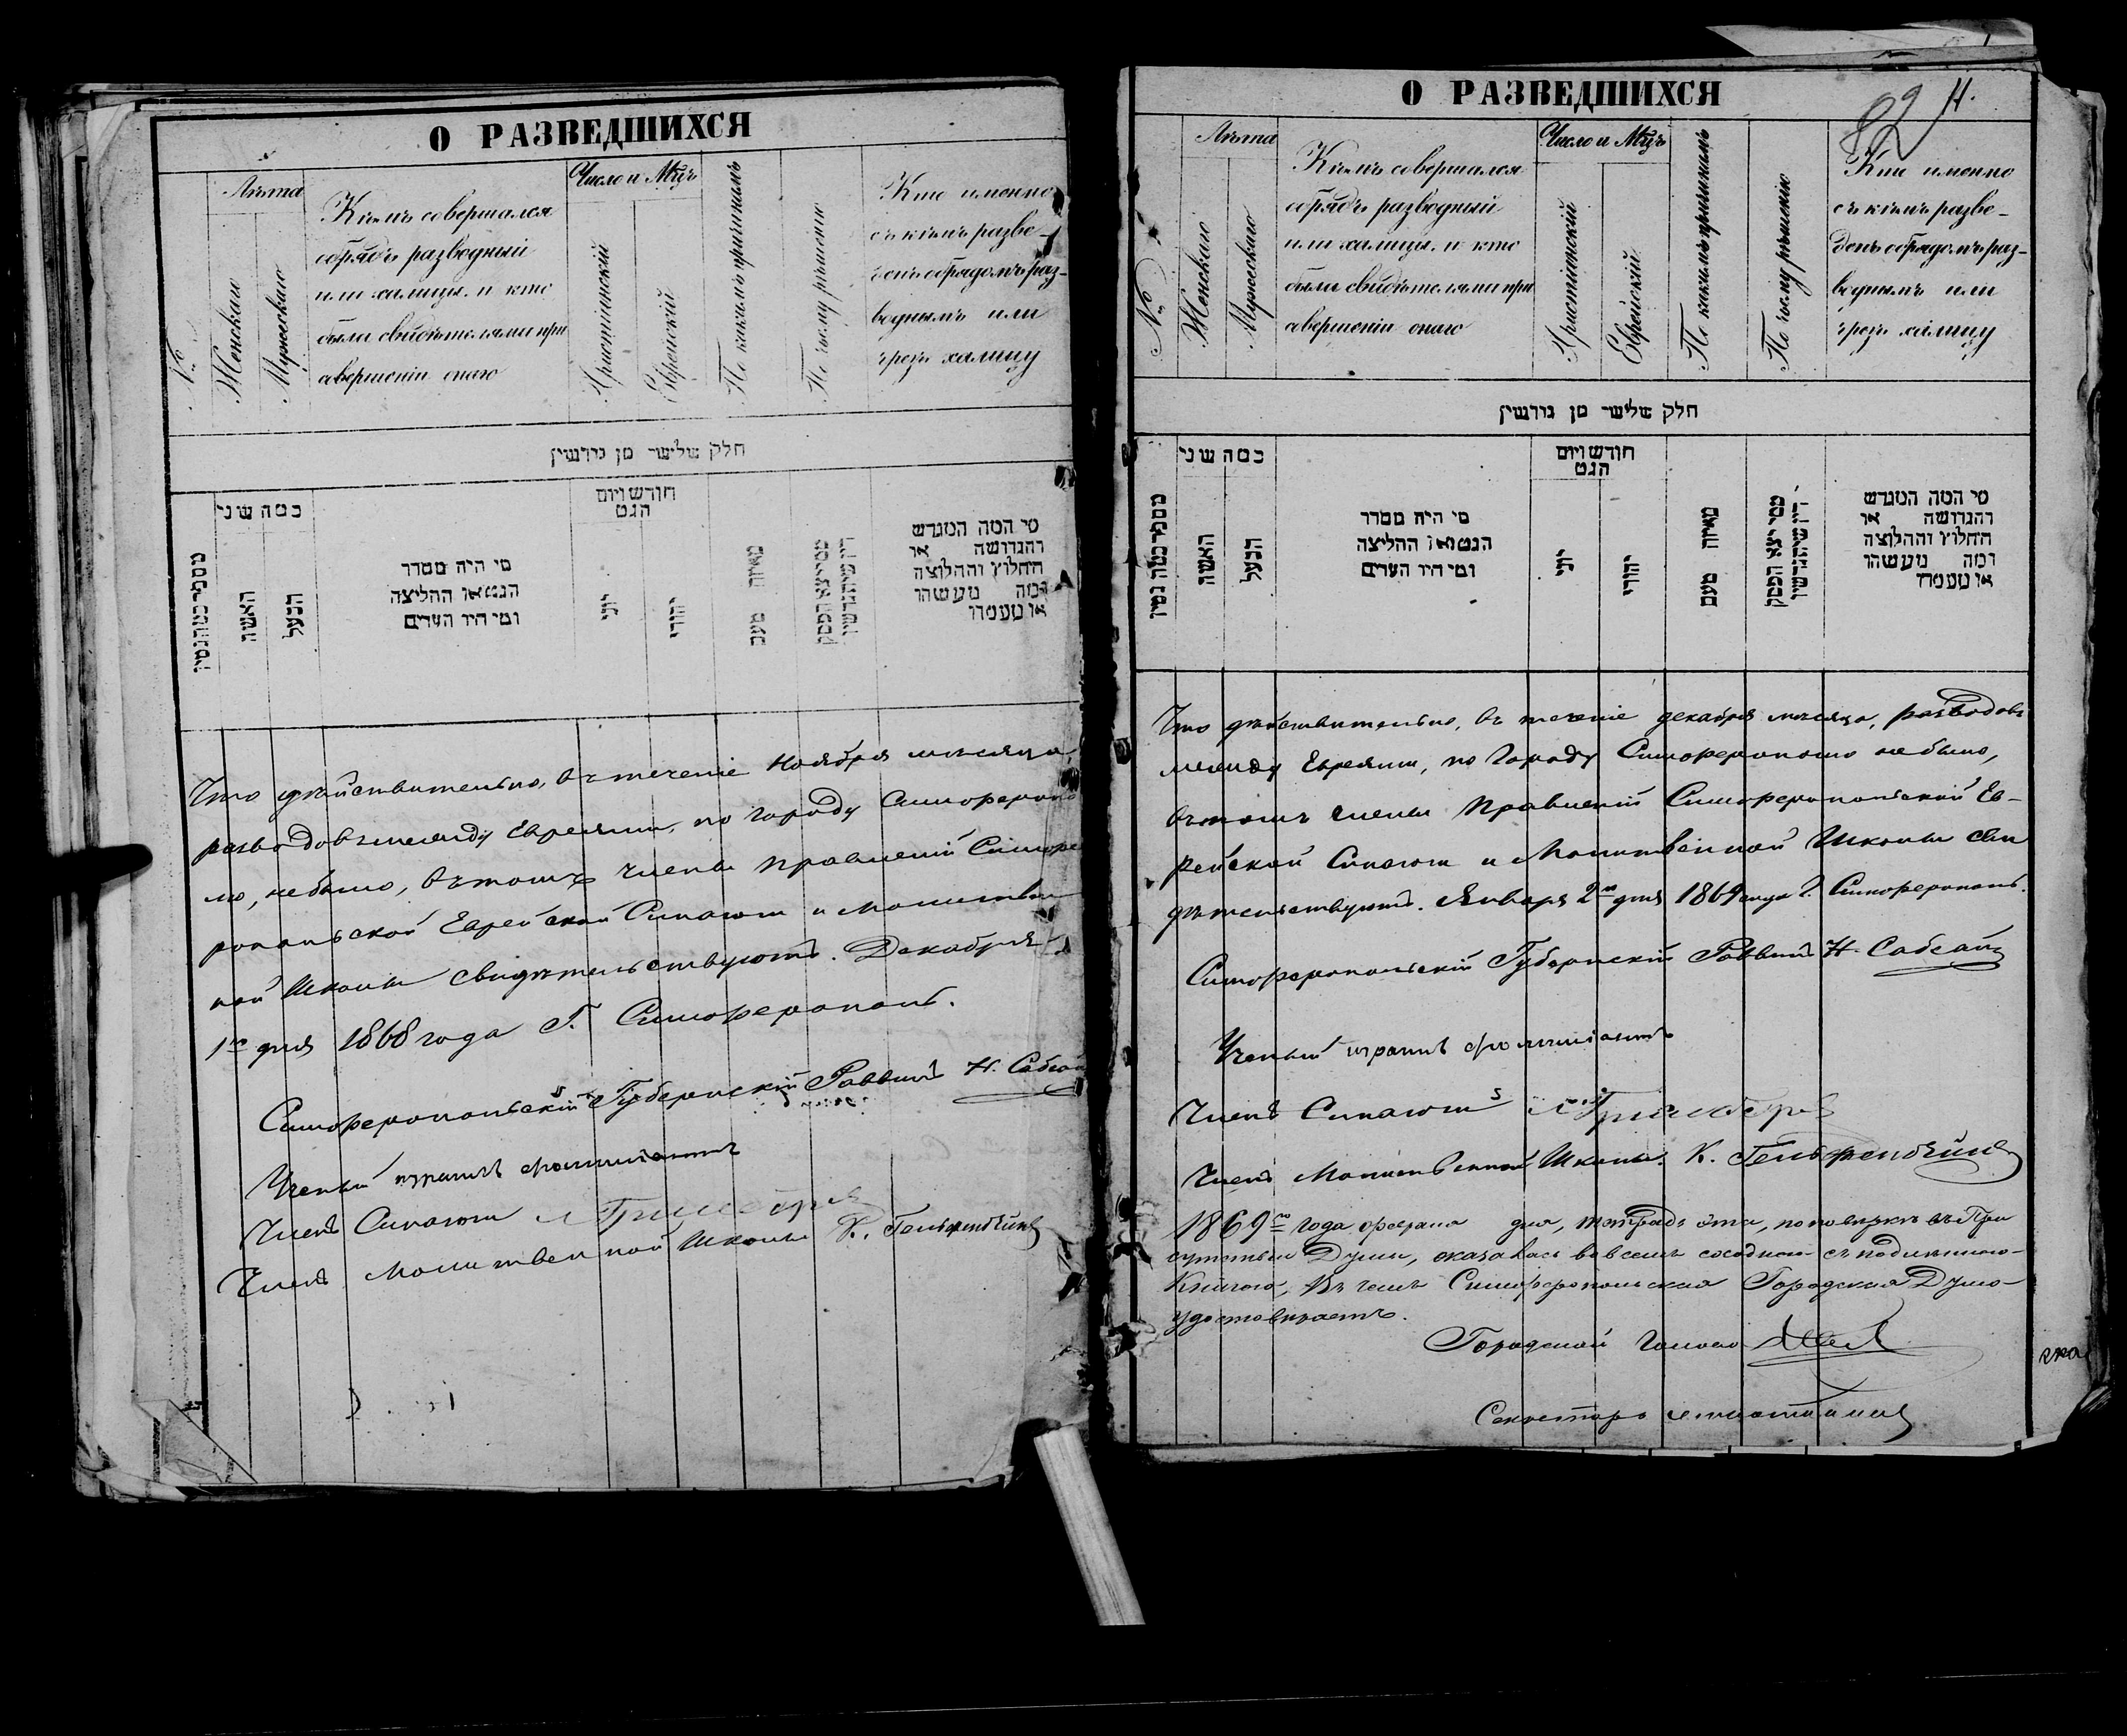 О РАЗВЕДШИХСЯ
№
Лѣта
Женскаго
Мужескаго
Кѣмъ совершался
обрядъ разводный
или халицы, и кто
были свидѣтелями при
совершеніи онаго
Число и Мѣцъ
Христіянскій
Еврейскій
По какимъ причинамъ
По чьему рѣшенію
Кто именно
съ кѣмъ разве-
денъ обрядомъ раз-
воднымъ или
чрезъ халицу
חלק שלישי מן גירושין
כמה שני
האשה
הבעל
מי היה מסדר
הגט או החליצה
ומי היו העדים
חודש ויום
הגט
יוני
יהודי
מאיזה טעם
ממי יצא הפסק
דין שיתגרשו
מי המה המגרש
והגרושה או
החלוץ והחלוצה
ומה מעשהו
או מעמדו
Что дѣйствительно, въ теченіе Ноября мѣсяца,
разводовъ между Евреями, по городу Симферопо
лю, не было, въ томъ члены Правленій Симфе
ропольской Еврейской Синагоги и Молитвен
ной Школы свидѣтельствуютъ. Декабря
1го дня 1868 года Г. Симферополь.
Симферопольскій Губернскій Раввинъ Н. Сабсай
Ученый
Членъ Синагоги
Членъ Молитвенной Школы К. Гельфендбейнъ
О РАЗВЕДШИХСЯ
82 11.
№
Лѣта
Женскаго
Мужескаго
Кѣмъ совершался
обрядъ разводный
или халицы, и кто
были свидѣтелями при
совершеніи онаго
Число и Мѣцъ
Христіянскій
Еврейскій
По какимъ причинамъ
По чьему рѣшенію
Кто именно
съ кѣмъ разве-
денъ обрядомъ раз-
воднымъ или
чрезъ халицу
חלק שלישי מן גירושין
כמה שני
האשה
הבעל
מי היה מסדר
הגט או החליצה
ומי היו העדים
חודש ויום
הגט
יוני
יהודי
מאיזה טעם
ממי יצא הפסק
דין שיתגרשו
מי המה המגרש
והגרושה או
החלוץ והחלוצה
ומה מעשהו
או מעמדו
Что дѣйствительно, въ теченіе декабря мѣсяца, разводовъ
между Евреями, по городу Симферополю не было,
въ томъ члены Правленій Симферопольской Ев-
рейской Синагоги и Молитвенной Школы сви
дѣтельствуютъ. Января 2го дня 1869 года Г. Симферополь.
Симферопольскій Губернскій Раввинъ Н. Сабсай
Ученый
Членъ Синагоги
Членъ Молитвенной Школы К. Гельфендбейнъ
1869го года февраля дня, тетрадь эта, по повѣркѣ въ При
сутствіи Думы, оказалась во всемъ сходною съ подлинною
Книгою, въ чемъ Симферопольская Городская Дума
удостовѣряетъ.
Городской голова
Секретарь